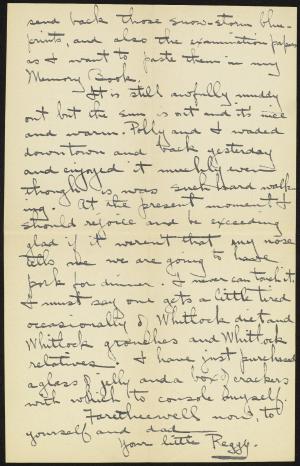 send back those snow-storm blue-
prints, and also the examination papers
as I want to paste them in my
Memory Book.
It is still awfully muddy
out but the sun is out and its nice
and warm. Polly and I waded
downtown and back yesterday
and enjoyed it muchly even
though is was such hard walk-
ing. At the present moment I
should rejoice and be exceeding
glad if it weren't that my nose
tells me we are going to have
pork for dinner. I never can touch it.
I must say one gets a little tired
occasionally of Whitlock diet and
Whitlock grouches and Whitlock
relatives. I have just purchased
a glass of jelly and a box of crackers
with which to console myself.
Faretheewell now, to
yourself and dad
Your little Peggy.